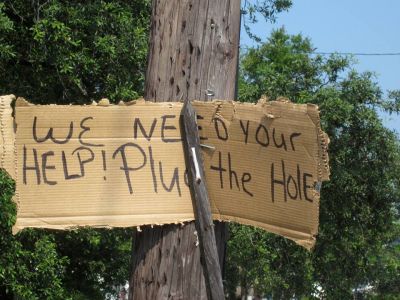 WE NEED Your
HELP! Plug the HolE